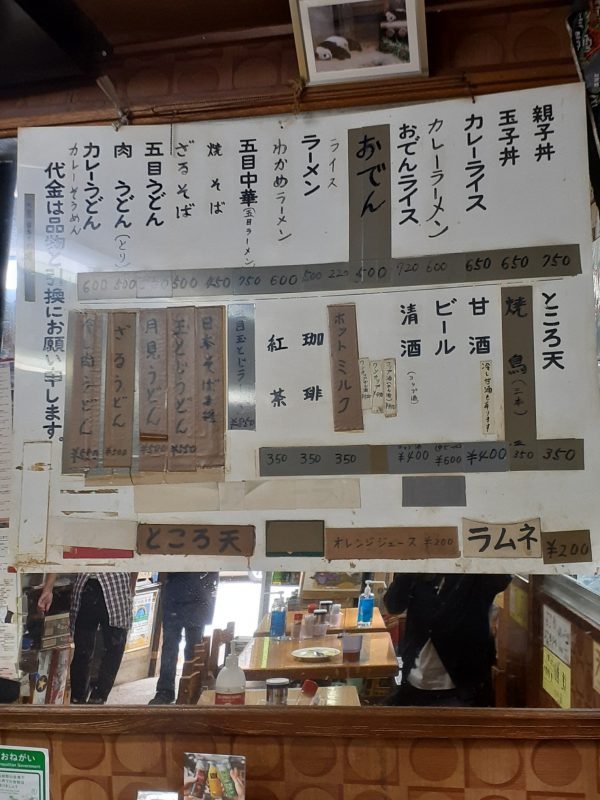 親子丼 750
玉子丼 650
カレーライス 650
カレーラーメン 600
おでんライス 720
おでん 500
ライス 220
ラーメン 500
わかめラーメン 600
五目中華(五目ラーメン) 750
焼そば 450
ざるそば 500
五目うどん
肉うどん(とり) 500
カレーうどん 600
カレーそうめん
代金は品物と引換にお願い申します。
ところ天 350
焼鳥(三本) 350
甘酒 ¥400
ビール ¥600
清酒(コップ酒) ¥400
ホットミルク 350
珈琲 350
紅茶 350
月見うどん ¥500
玉とじうどん ¥550
ざるうどん ¥500
冷し肉うどん
ところ天
オレンジジュース ¥200
ラムネ ¥200
おねがい